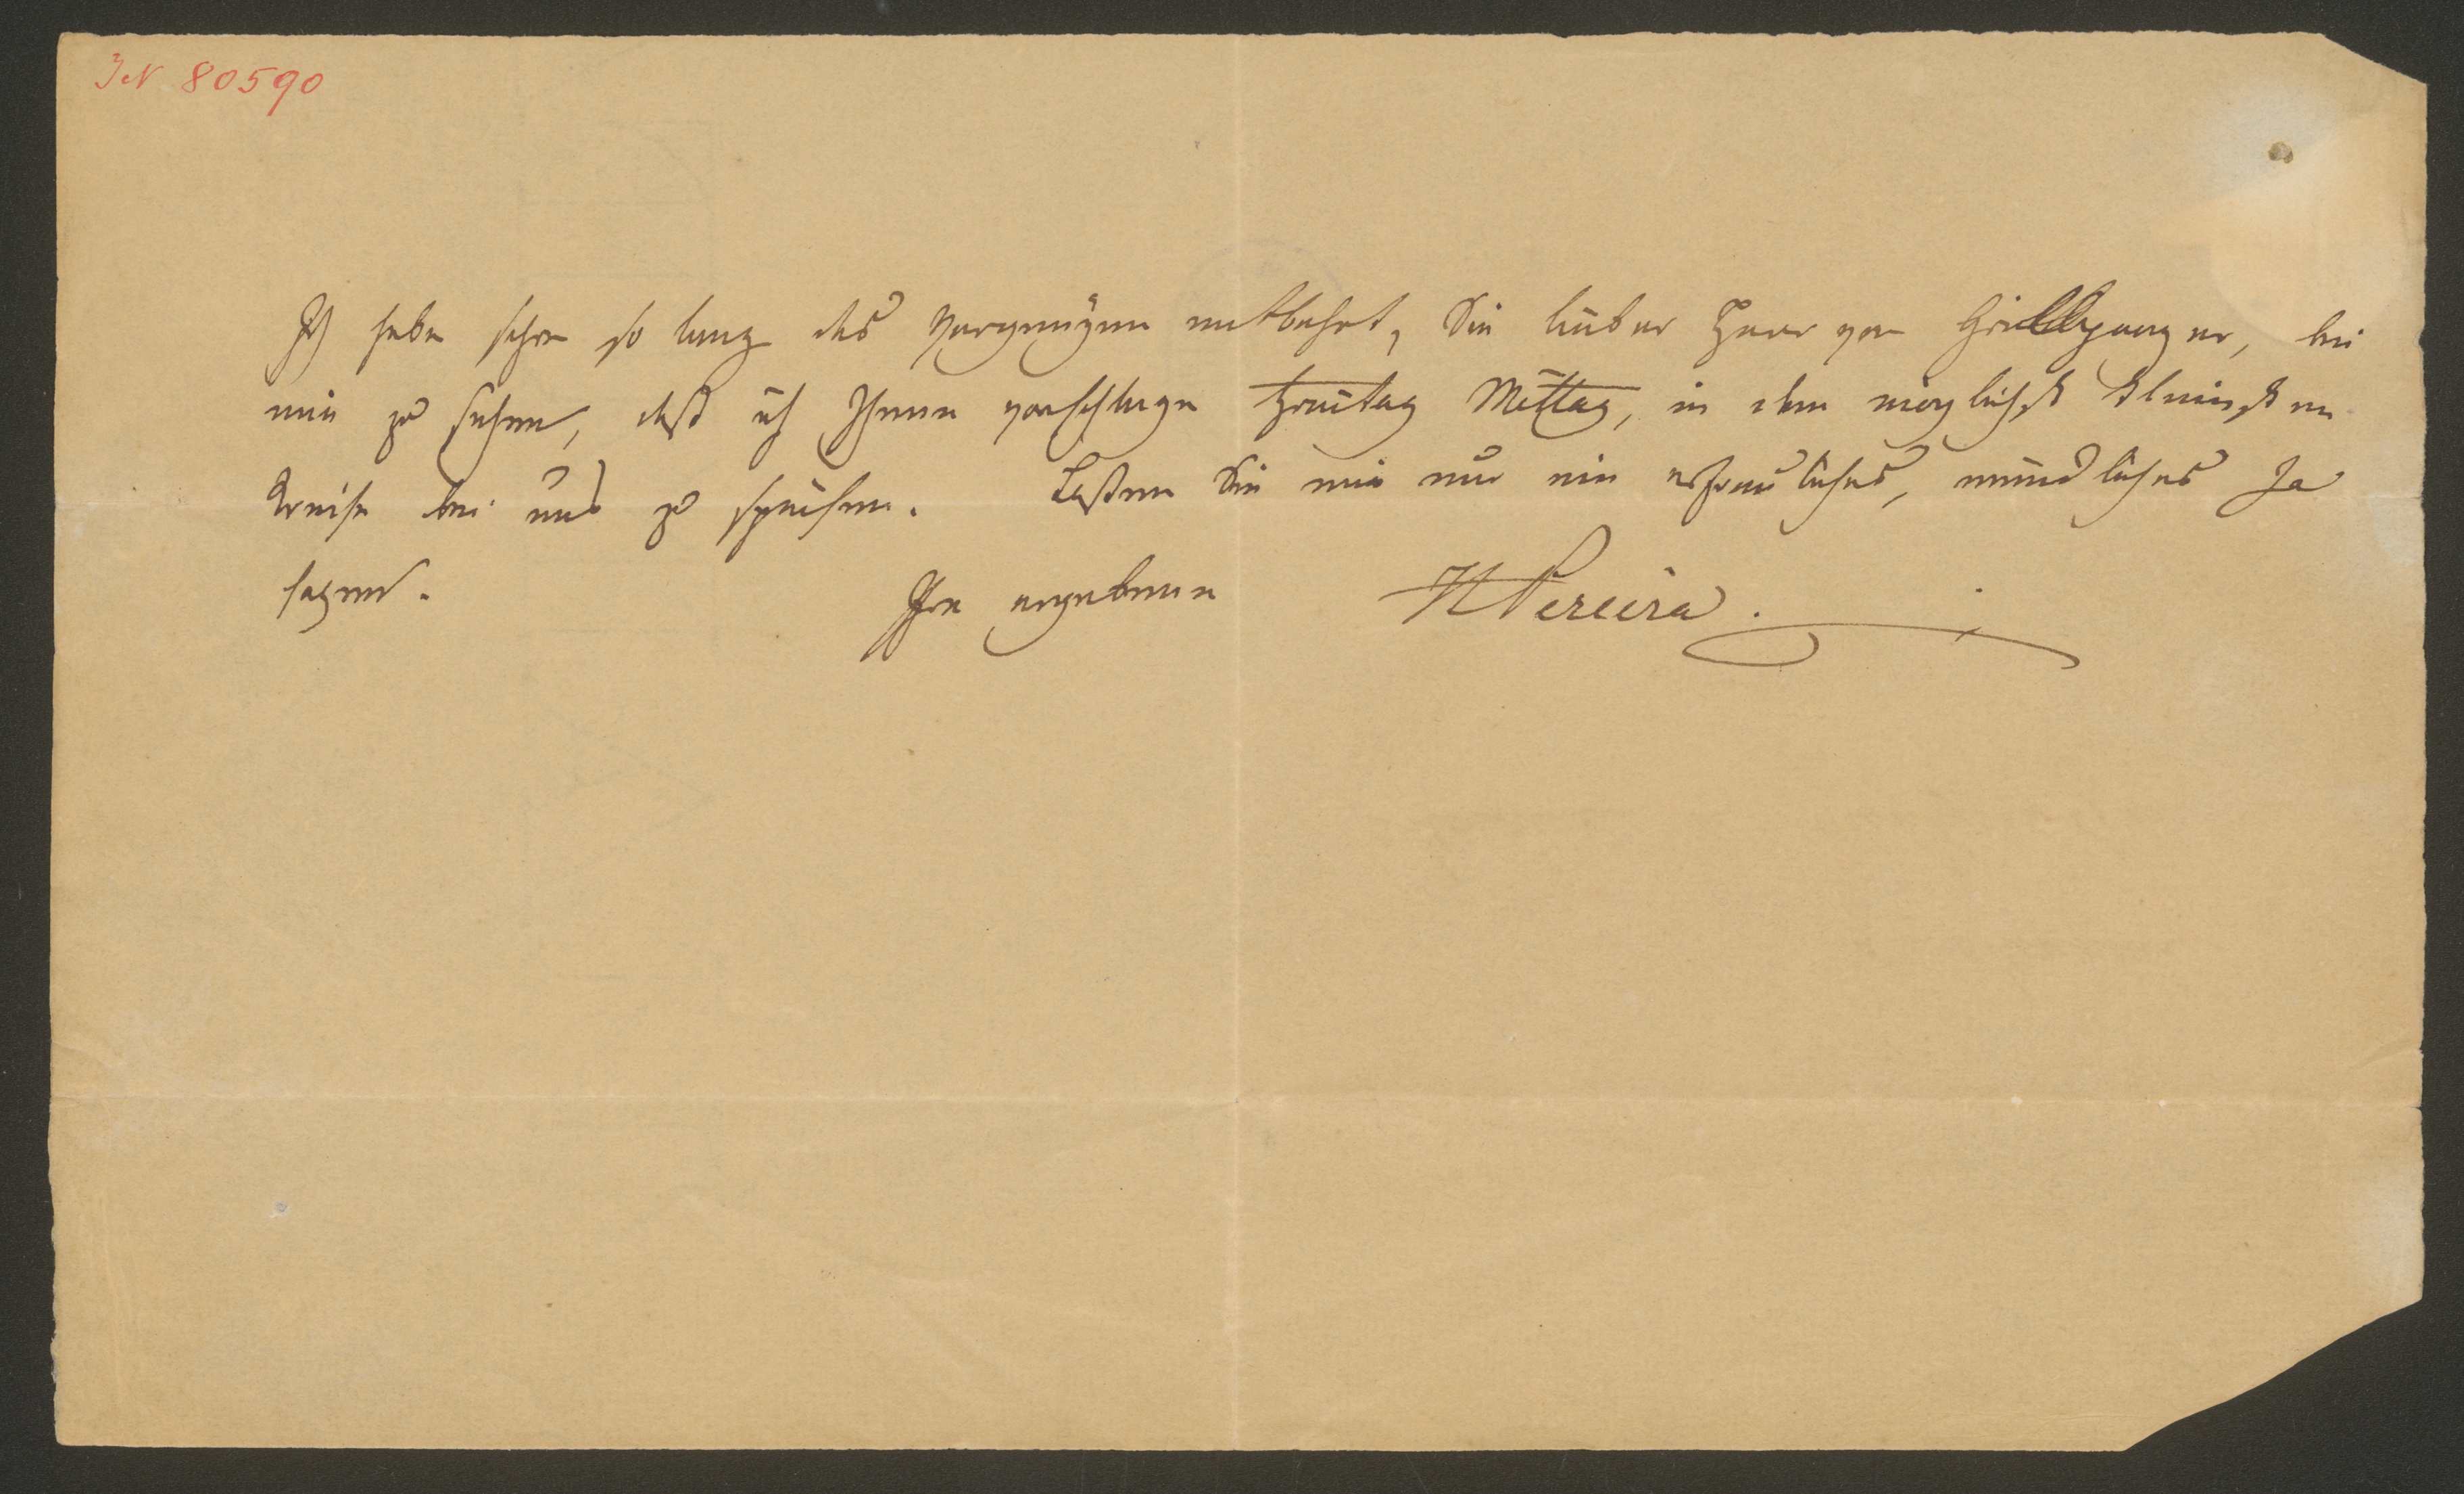 JN 80590
Ich habe schon so lang das Vergnügen entbehrt, Sie lieber Herr von Grillparzer, bei
mir zu sehen, daß ich Ihnen vorschlage Freitag Mittag, in dem möglichst kleinsten
Kreise bei uns zu speisen. Laßen Sie mir nur ein erfreuliches, mündliches Ja
sagen.
Ihre ergebene HPereira.